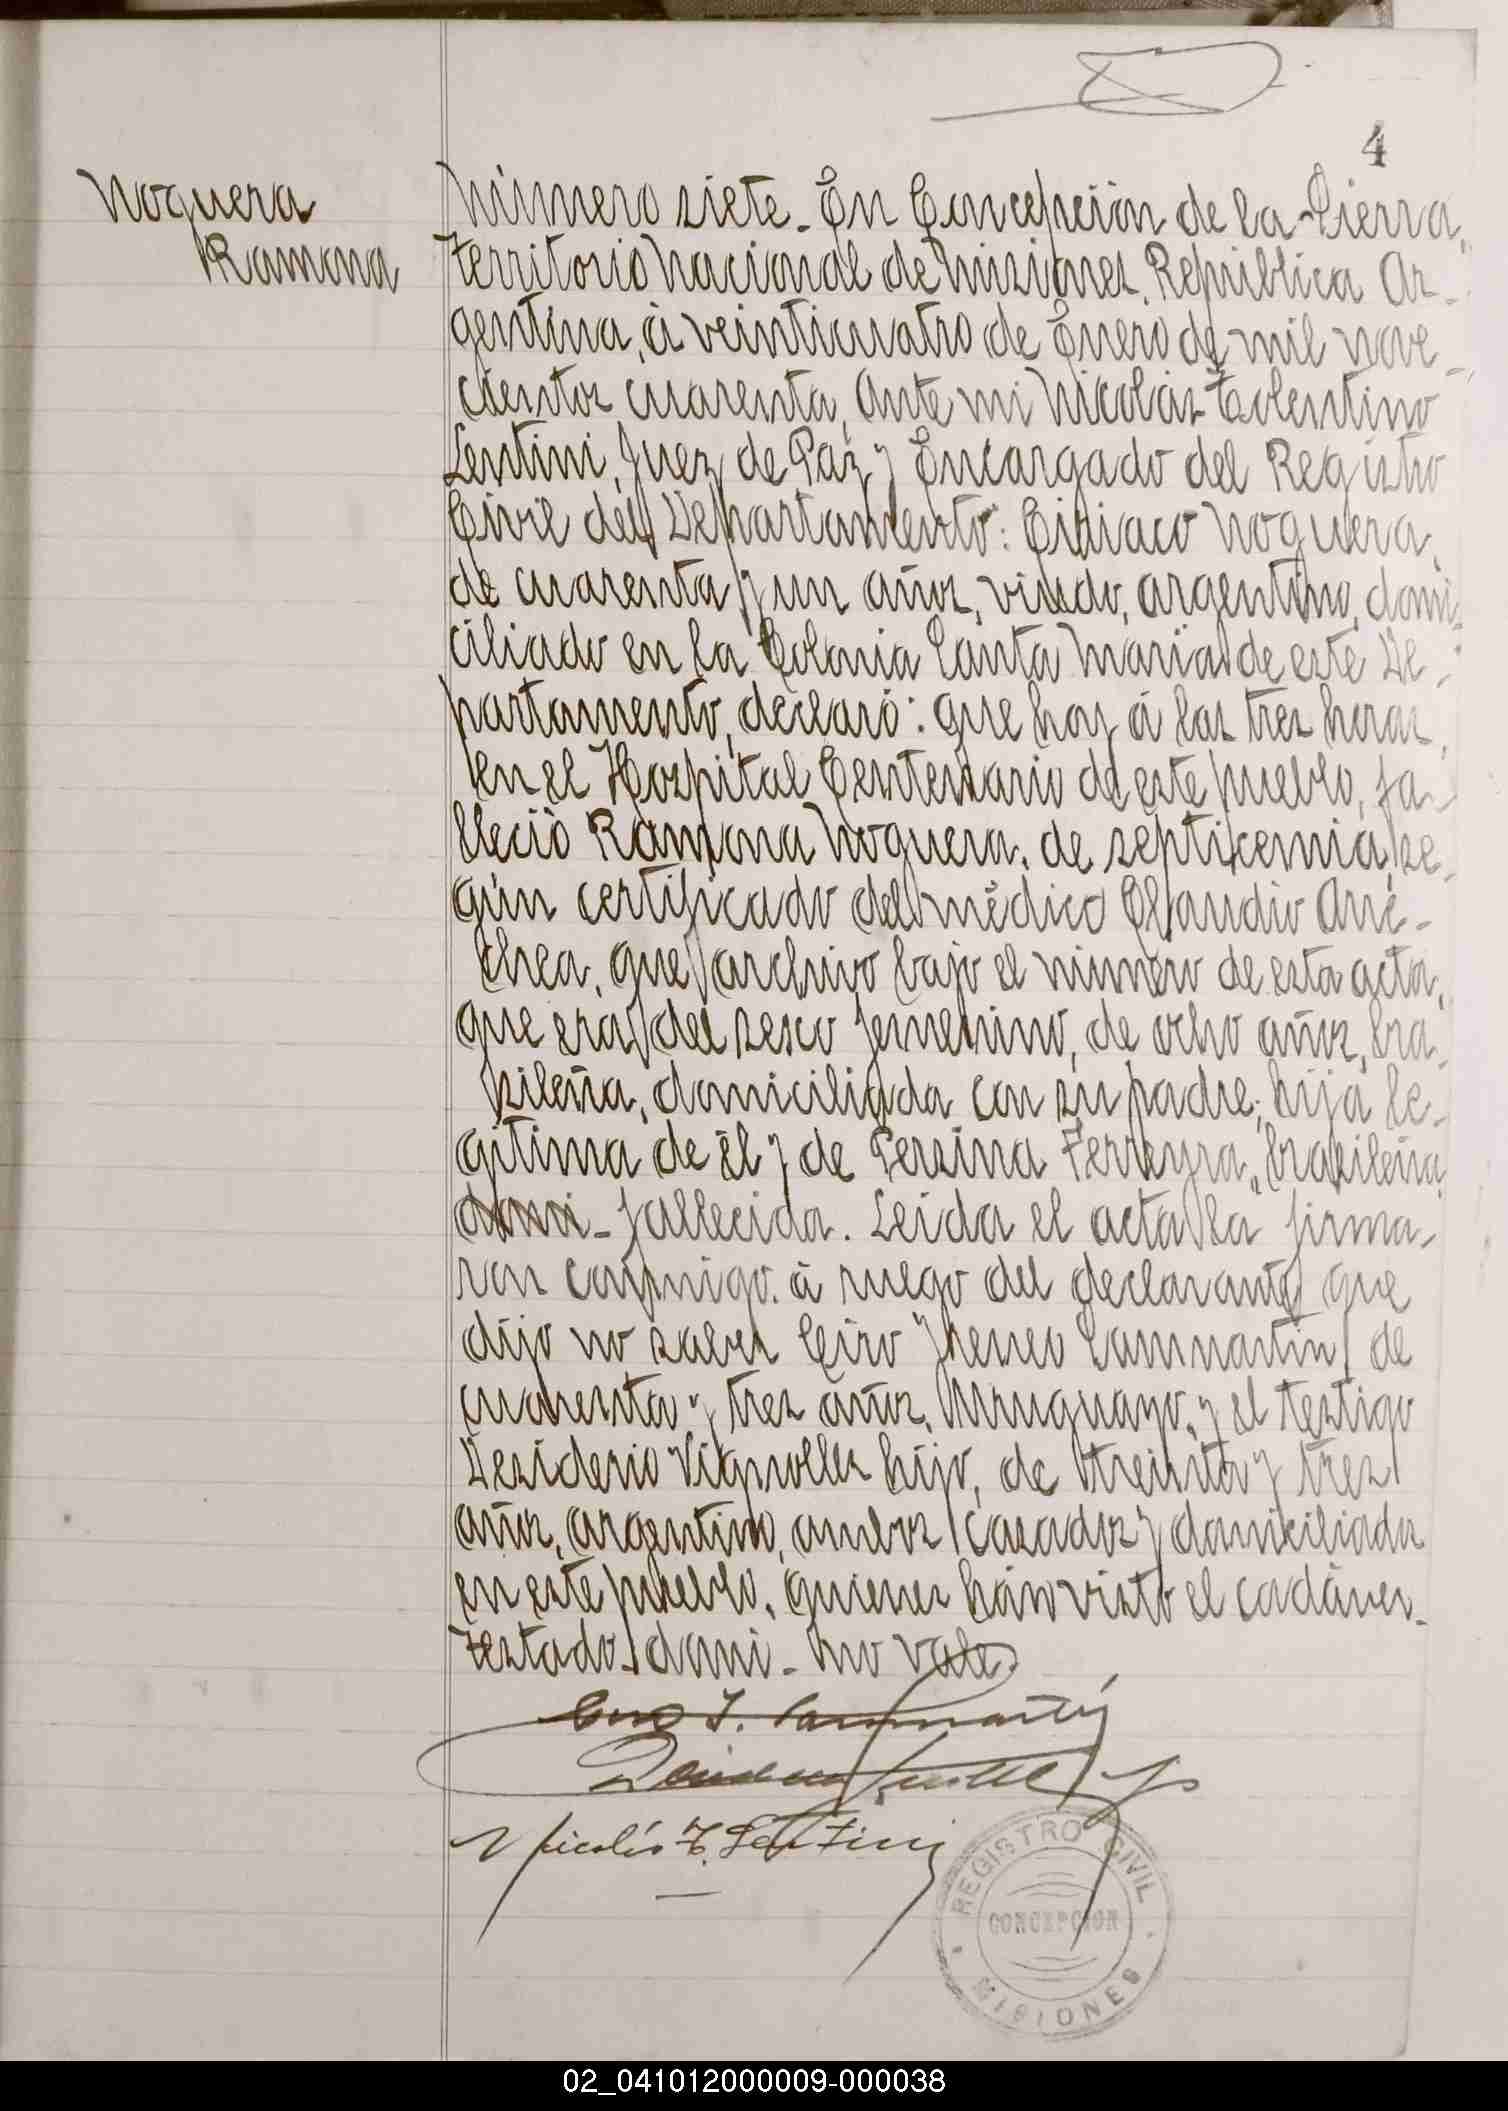 4
Noguera
Ramona
Número siete. En Concepción de la Sierra,
Territorio Nacional de Misiones, República Ar-
gentina, á veinticuatro de Enero de mil nove-
cientos cuarenta, Ante mi Nicolás Tolentino
Lentini, Juez de Paz y Encargado del Registro
Civil del Departamento: Ciriaco Noguera,
de cuarenta y un años, viudo, argentino, domi-
ciliado en la Colonia Santa María de este De-
partamento, declaró: que hoy á las tres horas,
en el Hospital Centenario de este pueblo, fa-
lleció Ramona Noguera, de septicemia, se-
gún certificado del médico Claudio Arre-
chea, que archivo bajo el número de esta acta,
que era del sexo femenino, de ocho años, bra-
sileña, domiciliada con su padre, hija le-
gítima de él y de Persina Ferreyra, brasileña,
domi- fallecida. Leida el acta la firma-
ron conmigo, á ruego del declarante que
dijo no saber Ciro Sanmartin, de
cuarenta y tres años, Uruguayo, y el testigo
Desiderio Vignolles hijo, de treinta y tres
años, argentino, ambos casados y domiciliados
en este pueblo, quienes hán visto el cadáver.
Testado: domi- No vale.
Ciro I. Sanmartin
Nicolás T. Lentini
REGISTRO CIVIL
CONCEPCION
MISIONES
02_041012000009-000038